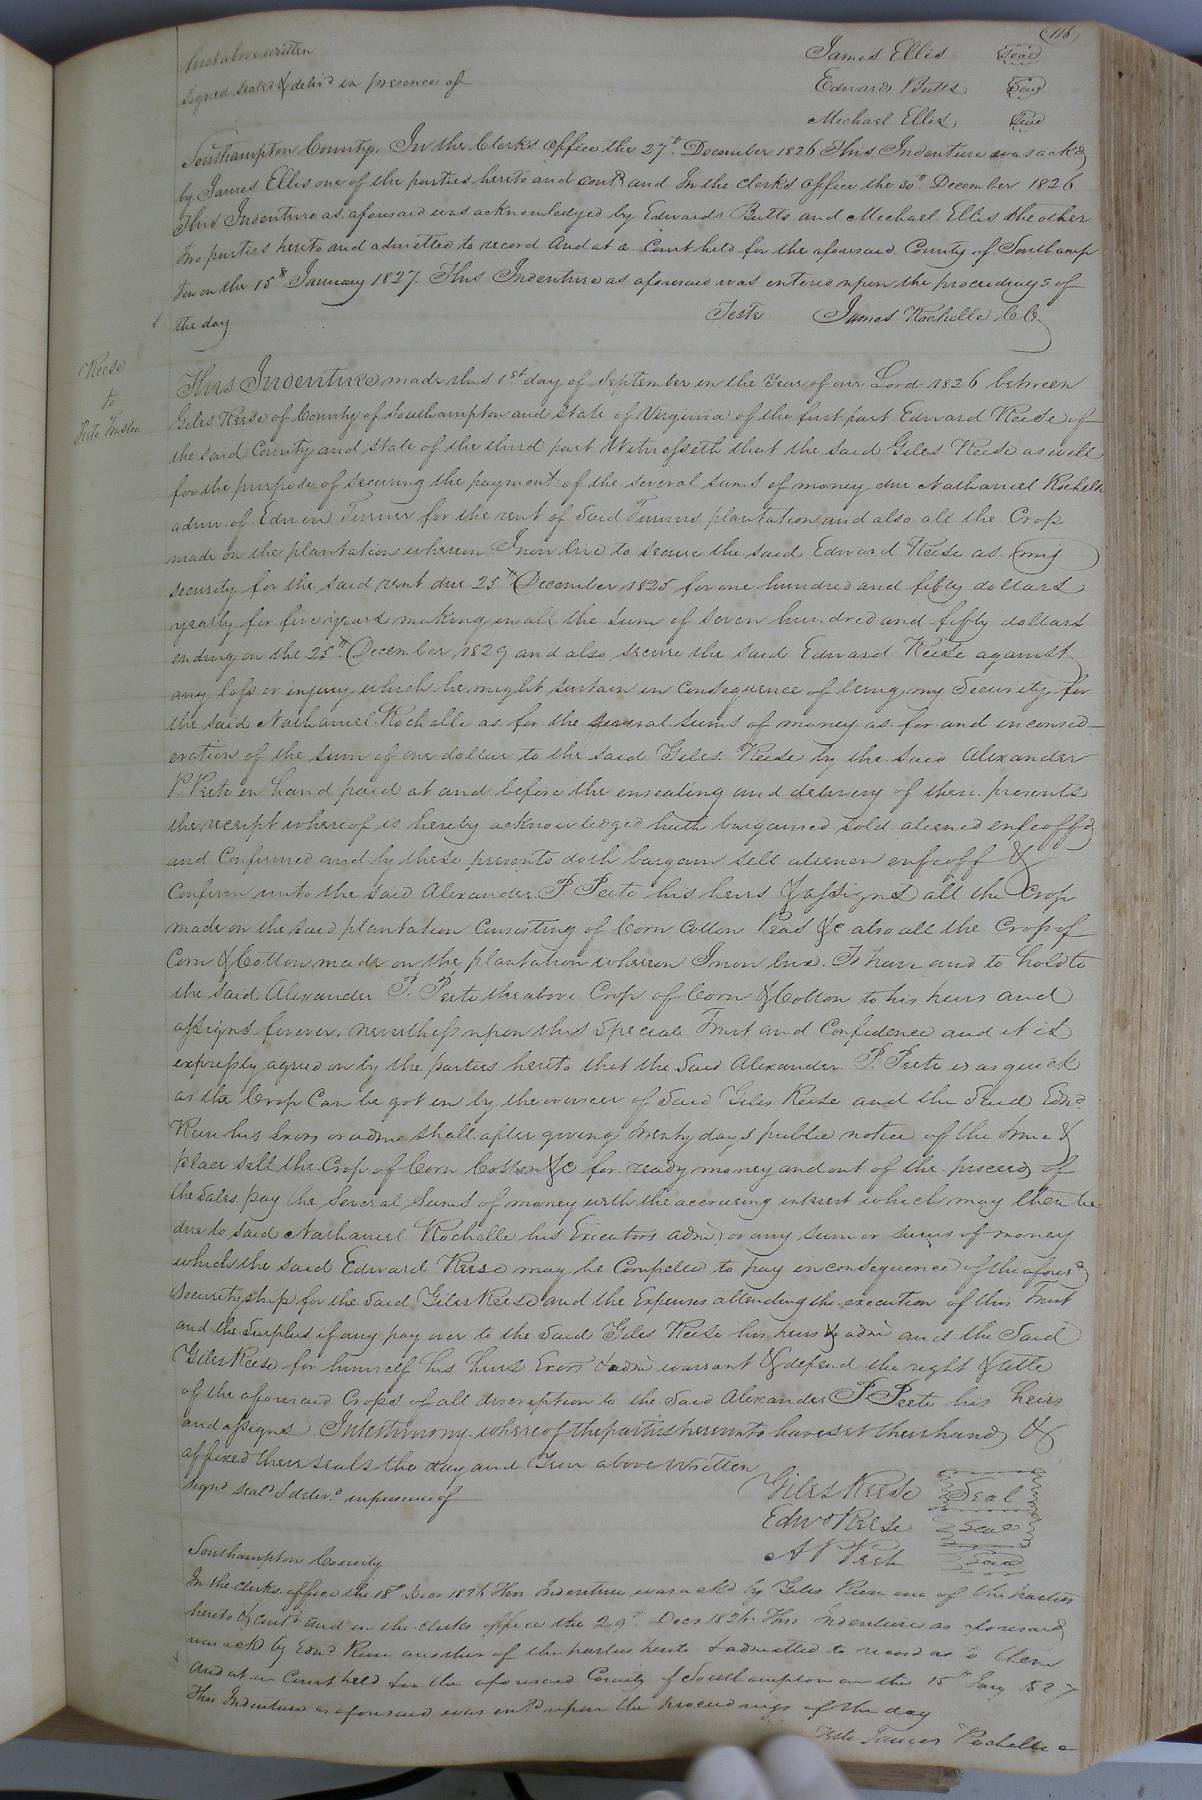 (116)
first above written James Ellis Seal
Signed sealed & deliv'd in presence of Edwards Butts Seal
Michael Ellis Seal
Southampton County. In the Clerks Office the 27th December 1826 This Indenture was ackd
by James Ellis one of the parties hereto and contd and In the clerks office the 30th December 1826
This Indenture as aforesaid was acknowledged by Edwards Butts and Michael Ellis the other
two parties hereto and admitted to record And at a Court held for the aforesaid County of Southamp
ton on the 15th January 1827. This Indenture as aforesaid was entered upon the proceedings of
the day Teste James Rochelle CC
Reese
to
Peete Trustee
This Indenture made this 1st day of September in the Year of our Lord 1826 between
Giles Reese of County of Southampton and State of Virginia of the first part Edward Reese of
the said County and State of the third part Witnesseth that the said Giles Reese as well
for the purpose of securing the payment of the several sums of money due Nathaniel Rochelle
admr of Edwin Turner for the rent of said Turners plantation and also all the Crop
made on the plantation whereon I now live to secure the said Edward Reese as my
security for the said rent due 25th December 1825 for one hundred and fifty dollars
yearly for five years making in all the sum of seven hundred and fifty dollars
ending on the 25th December 1829 and also secure the said Edward Reese against
any loss or injury which he might sustain in Consequence of being my Security for
the said Nathaniel Rochelle as for the several sums of money as for and in consid-
eration of the sum of one dollar to the said Giles Reese by the said Alexander
P. Peete in hand paid at and before the ensealing and delivery of these presents
the receipt whereof is hereby acknowledged hath bargained sold aliened enfeoffd
and Confirmed and by these presents doth bargain sell alienen enfeoff &
Confirm unto the said Alexander P. Peete his heirs & assigns all the Crop
made on the said plantation Consisting of Corn Cotton Peas &c also all the Crop of
Corn & Cotton made on the plantation whereon I now live. To have and to hold to
the said Alexander P. Peete the above Crop of Corn & Cotton to his heirs and
assigns forever. nevertheless upon this Special Trust and Confidence and it is
expressly agreed on by the parties hereto that the said Alexander P. Peete is as quick
as the Crop Can be got in by the overseer of said Giles Reese and the said Edwd
Reese his Exors or admr shall after giving twenty days public notice of the time &
place sell the Crop of Corn Cotton &c for ready money and out of the proceeds of
the Sales pay the Several Sums of money with the accrueing interest which may then be
due to said Nathaniel Rochelle his Executors admr or any sum or sums of money
which the said Edward Reese may be Compelled to pay in consequence of the aforesd
Securityship for the Said Giles Reese and the Expenses attending the execution of this Trust
and the Surplus if any pay over to the Said Giles Reese his heirs & admr and the Said
Giles Reese for himself his heirs Exors & admr warrant & defend the right & title
of the aforesaid Crops of all discription to the Said Alexander P. Peete his heirs
and assigns In testimony whereof the parties hereunto have set their hands &
affixed their seals the day and Year above written
Signd Seald & delivd in presence of Giles Reese Seal
Edwd Reese Seal
A P Peete Seal
Southampton County
In the clerks office the 18th Decr 1826 This Indenture was ackd by Giles Reese one of the parties
hereto & contd and in the clerks office the 29th Decr 1826. This Indenture as aforesaid
was ackd by Edwd Reese another of the parties hereto & admitted to record as to them
And at a Court held for the aforesaid County of Southampton on the 15th Jany 1827
This Indenture as aforesaid was entd upon the proceedings of the day
Teste James Rochelle c